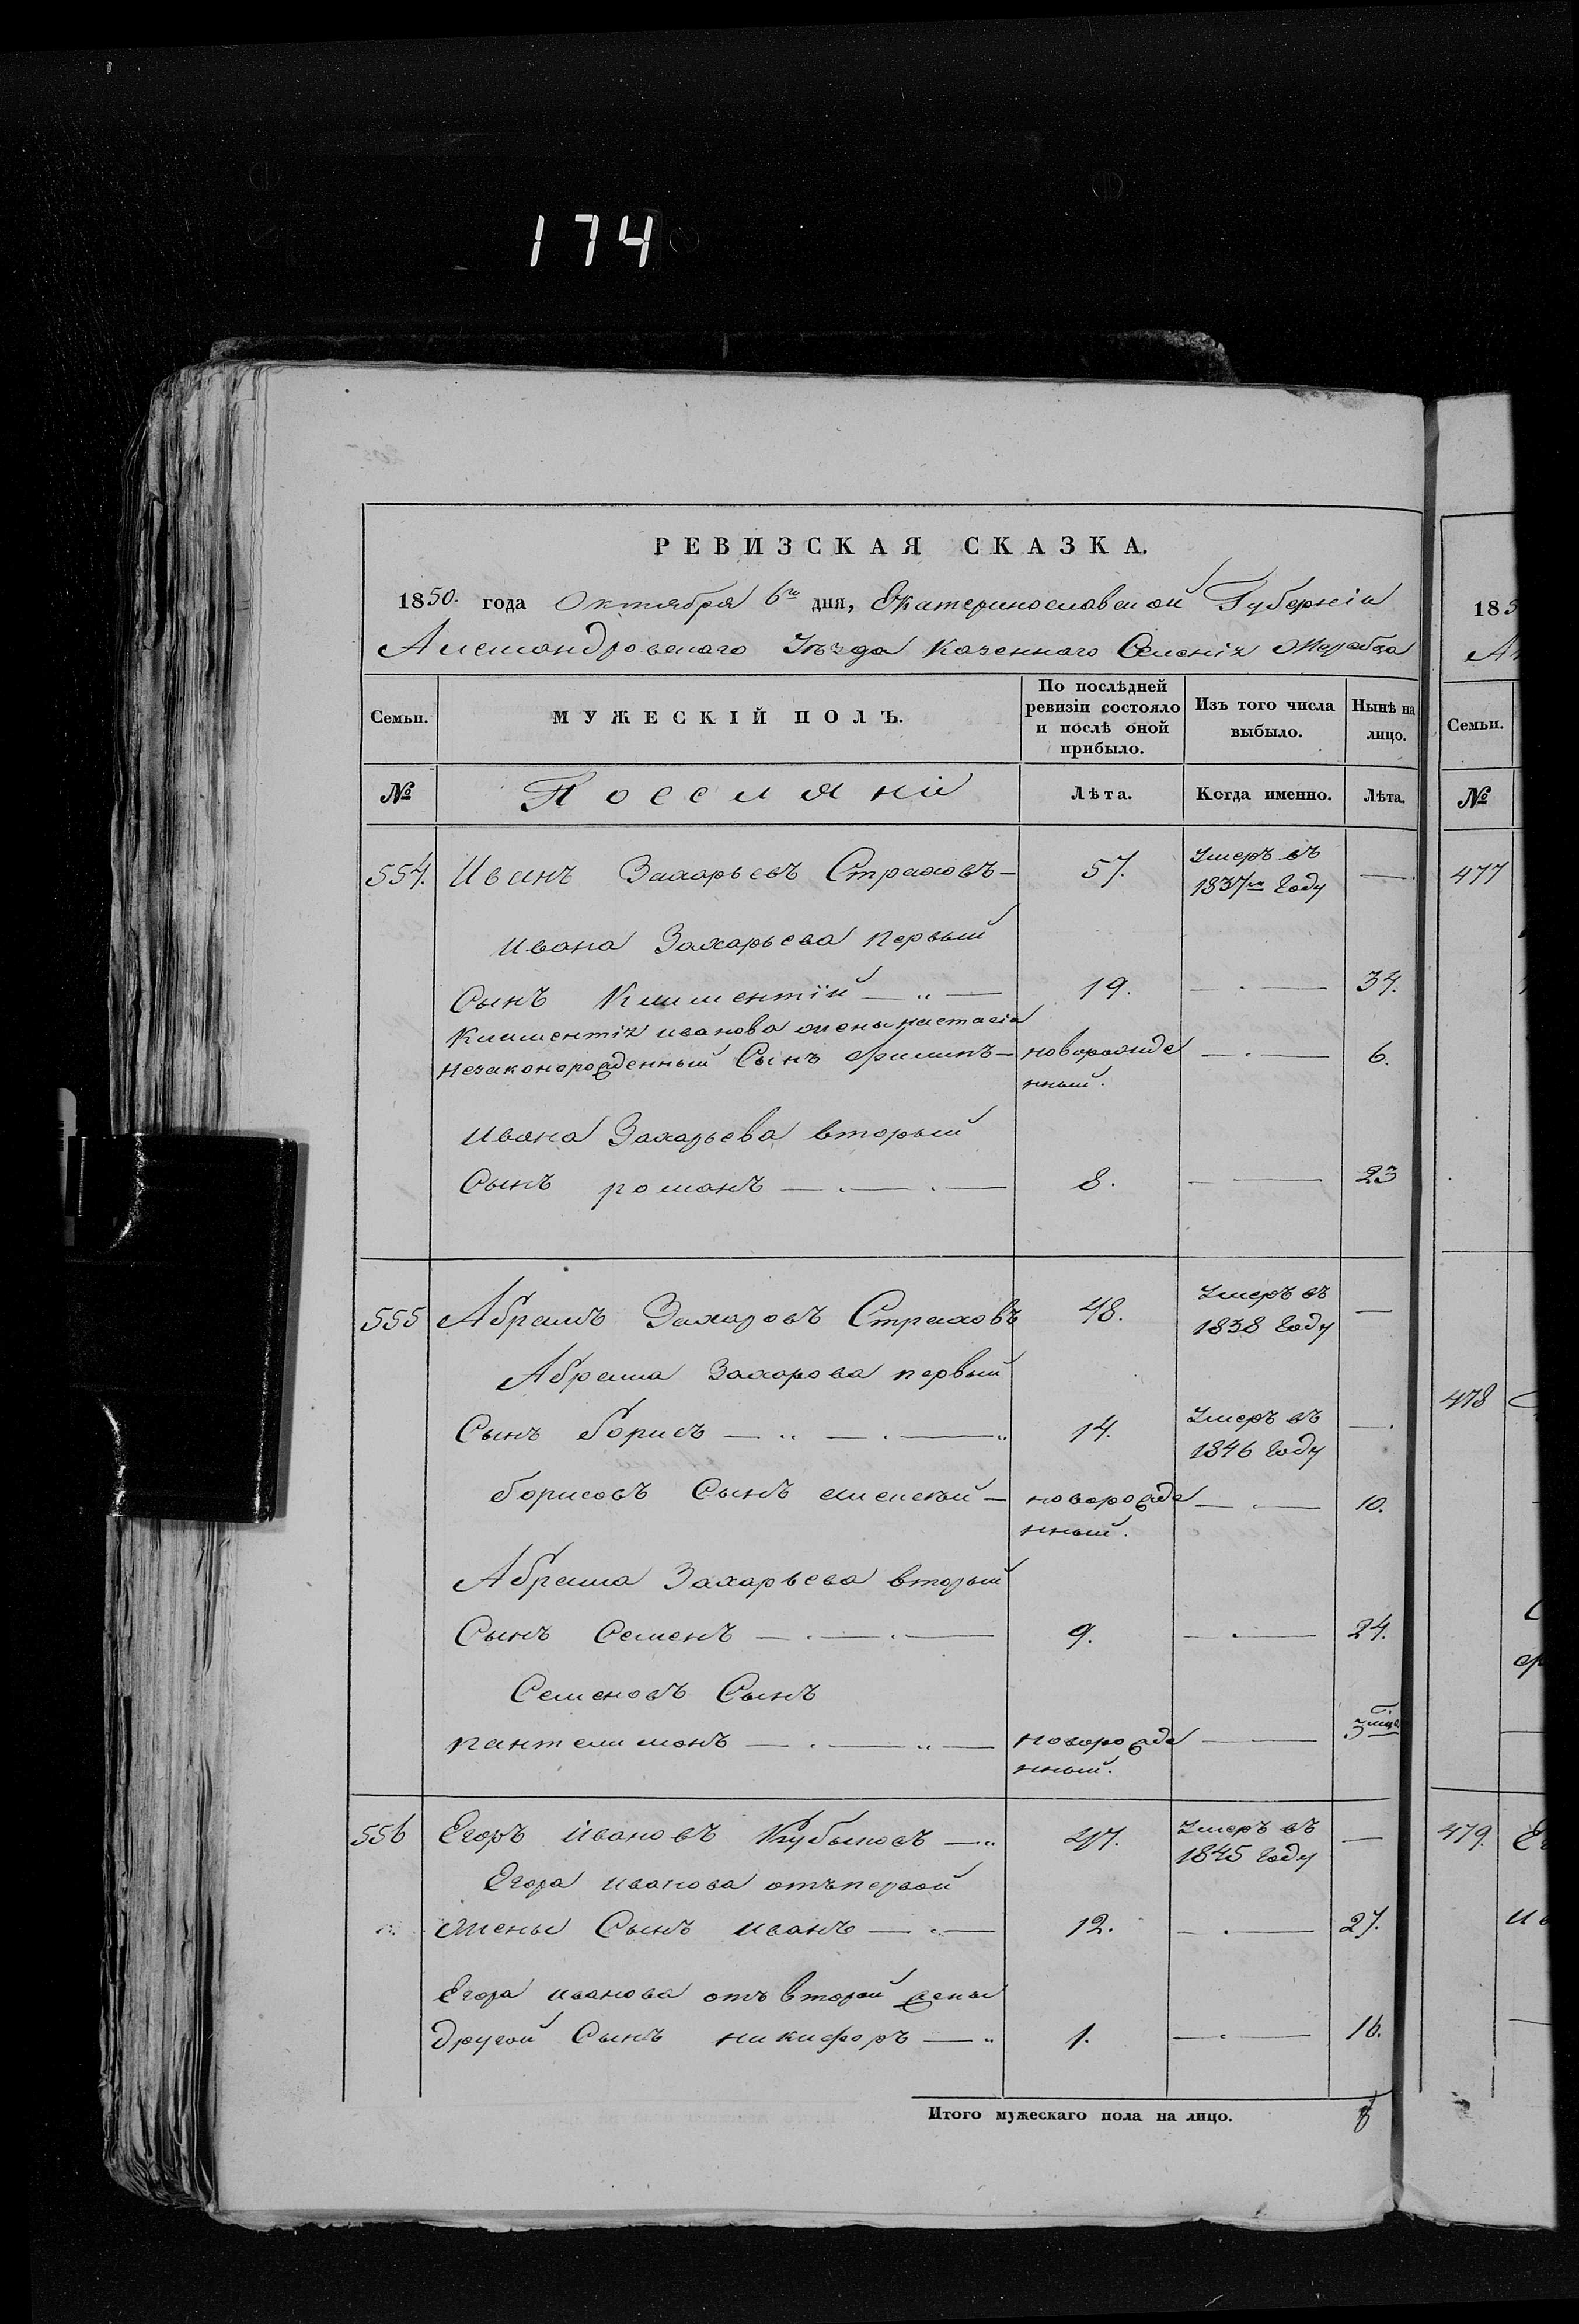 174
РЕВИЗСКАЯ СКАЗКА.
1850. года Октября 6го дня, Екатеринославской Губерніи
Александровскаго Уѣзда Казеннаго Селенія Жеребца
Семьи. МУЖЕСКІЙ ПОЛЪ. По послѣдней ревизіи состояло и послѣ оной прибыло. Изъ того числа выбыло. Нынѣ на лицо.
№ Поселяни Лѣта. Когда именно. Лѣта.
554. Иванъ Захарьевъ Страховъ — 57. Умеръ въ 1837м Году —
Ивана Захарьева первый
Сынъ Климентій — „ — 19. — . — 34.
Климентія иванова жены настасіи
незаконорожденный Сынъ филипъ — новорожде нный. — . — 6.
Ивана Захарьева вторый
Сынъ романъ — . — . — 8. — 23
555 Абрамъ Захаровъ Страховъ 48. Умеръ въ 1838 Году —
Абрама Захарова первый
Сынъ борисъ — „ — . — „ 14. Умеръ въ 1846 Году — .
борисовъ Сынъ алексѣй — новорожде нный. — . — 10.
Абрама Захарьева вторый
Сынъ Семенъ — . — . — 9. — . — 24.
Семеновъ Сынъ
пантелимонъ — . — „ — новорожде нный. — 3 мца
556 Егоръ ивановъ Кубышовъ — „ 47. Умеръ въ 1845 Году —
Егора иванова отъ первой
жены Сынъ иванъ — „ — 12. — . — 27.
Егора иванова отъ второй жены
другой Сынъ никифоръ — „ 1. — . — 16.
Итого мужескаго пола на лицо. 8
185
Семьи.
№
477
478
479.